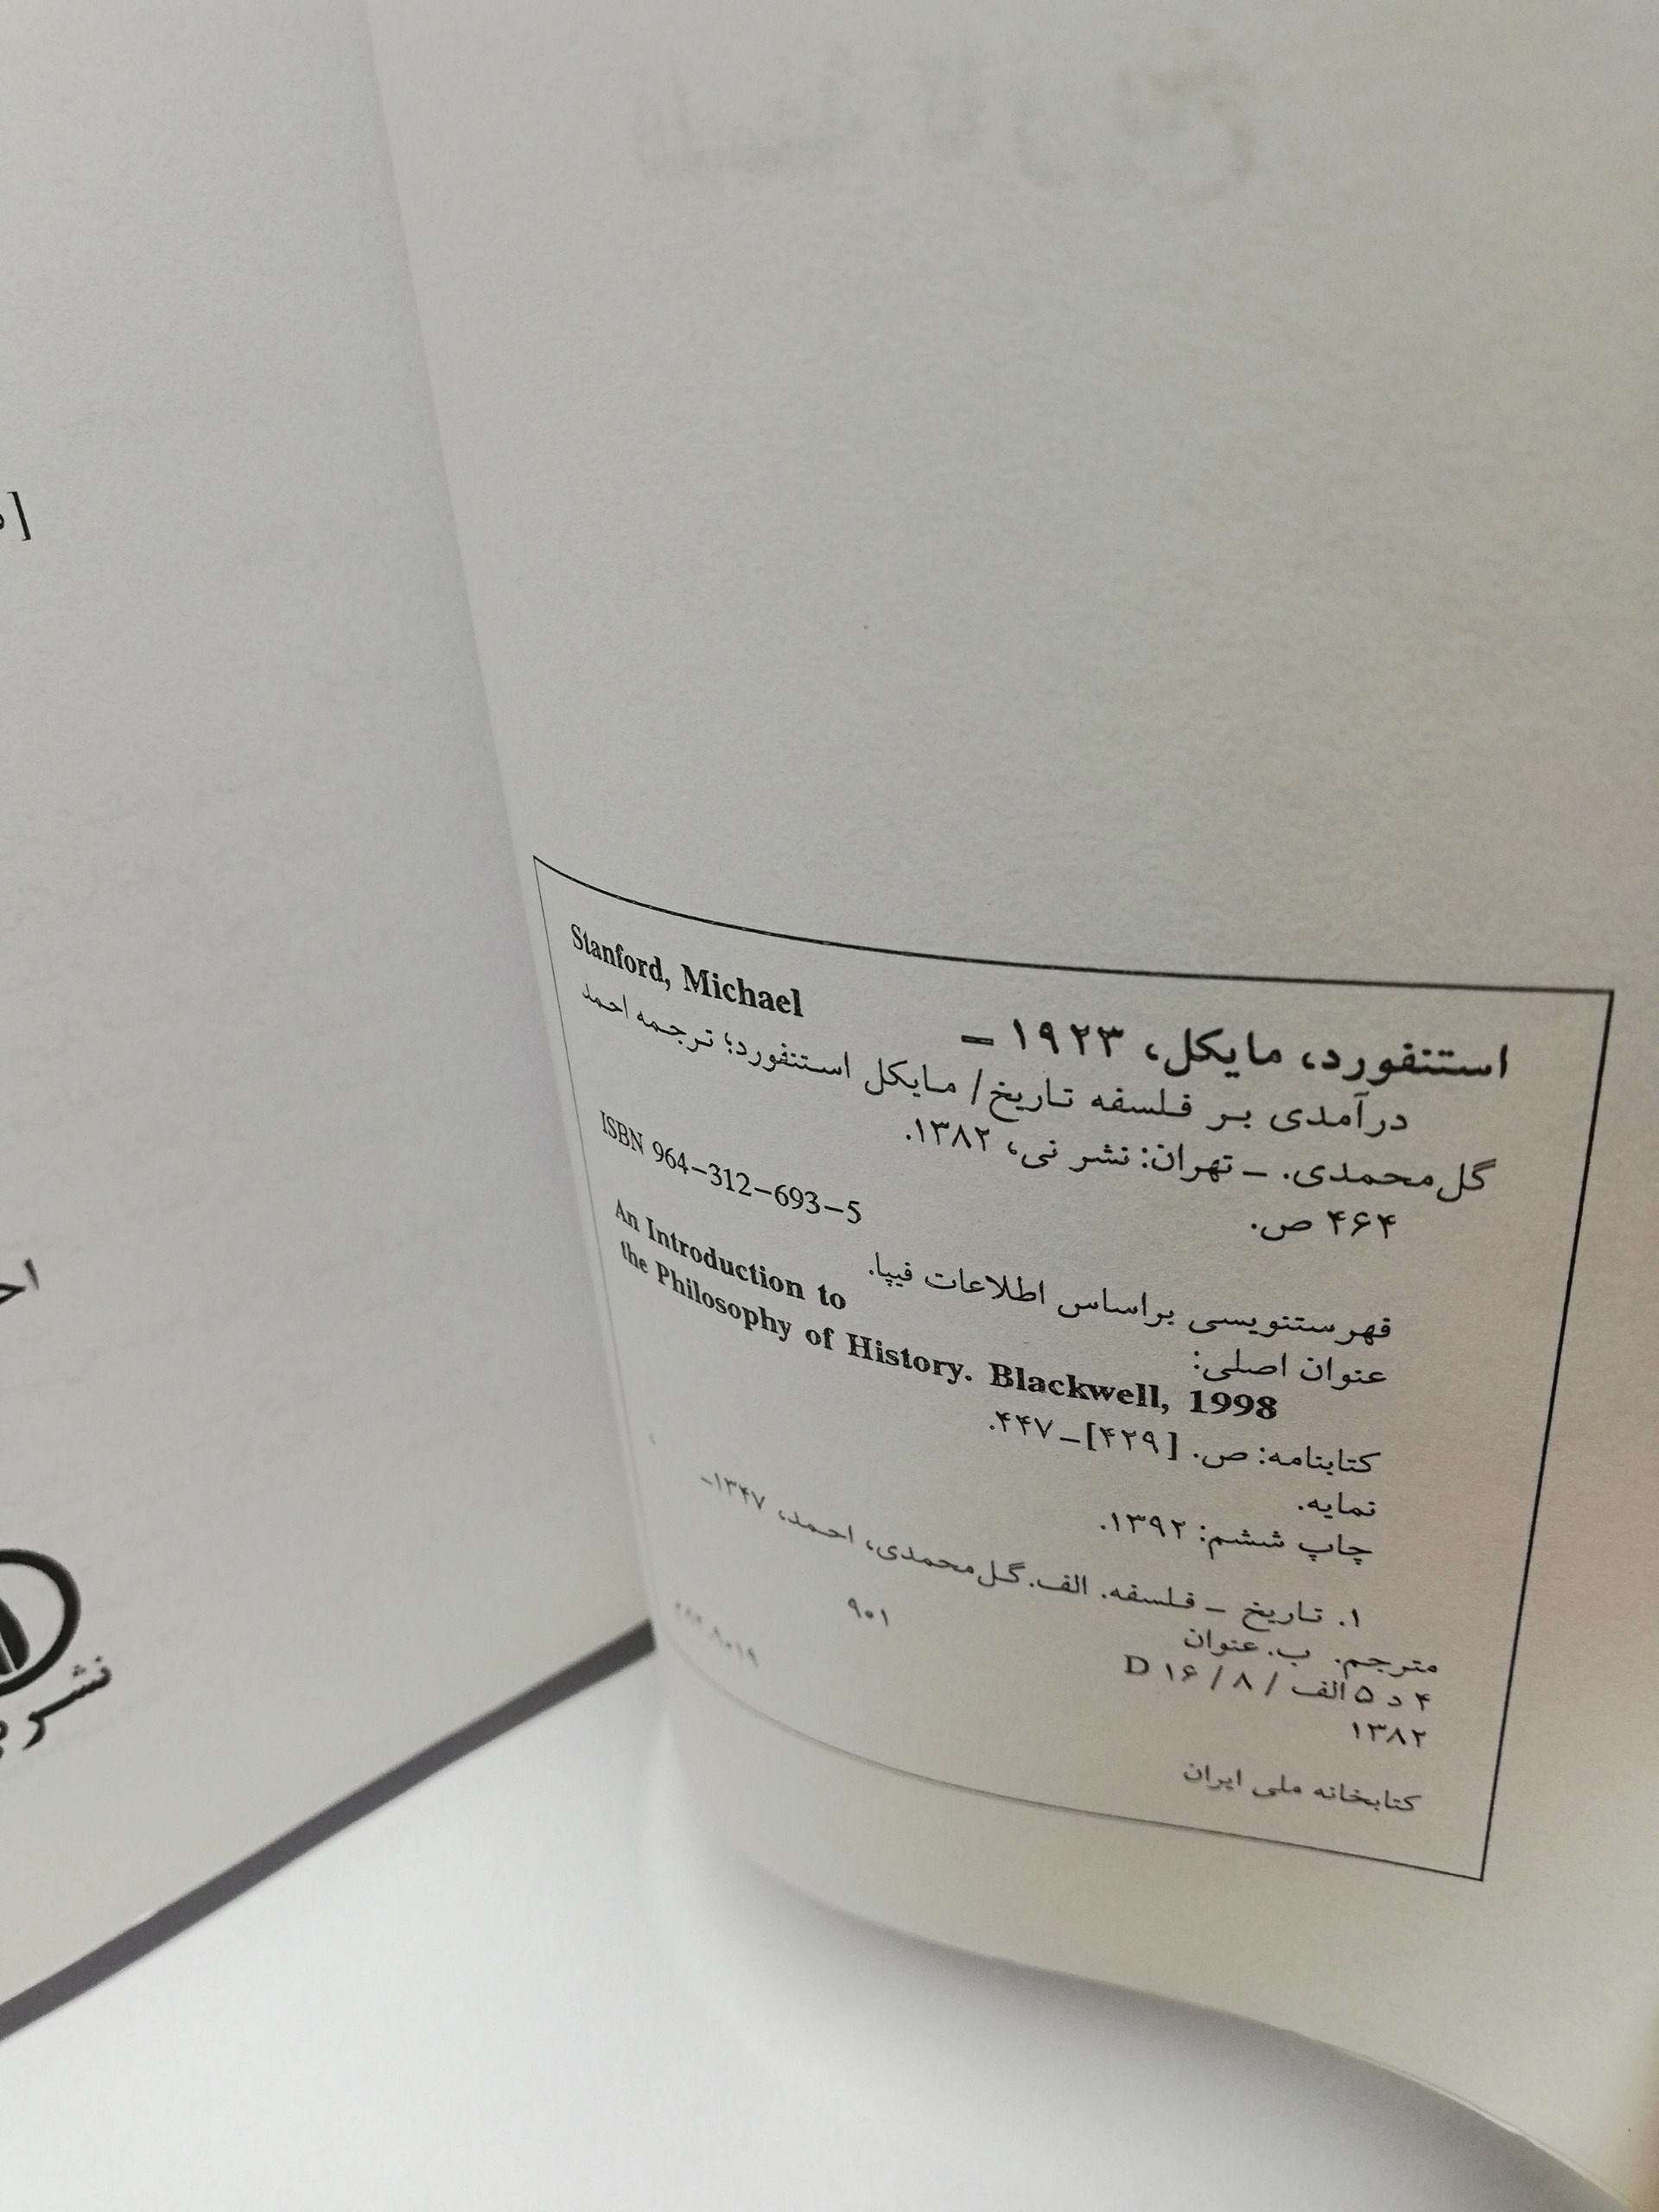 استنفورد، مایکل، ۱۹۲۳ – Stanford, Michael
درآمدی بر فلسفه تاریخ/ مایکل استنفورد؛ ترجمه احمد
گل‌محمدی. – تهران: نشر نی، ۱۳۸۲.
۴۶۴ ص. ISBN 964–312–693–5
فهرستنویسی براساس اطلاعات فیپا.
عنوان اصلی: An Introduction to
the Philosophy of History. Blackwell, 1998
کتابنامه: ص. [۴۲۹]–۴۴۷.
نمایه.
چاپ ششم: ۱۳۹۲.
۱. تاریخ – فلسفه. الف. گل‌محمدی، احمد، ۱۳۴۷–
مترجم. ب. عنوان
۴ د ۵ الف / ۸ / ۱۶ D ۹۰۱
۱۳۸۲
کتابخانه ملی ایران
نشر